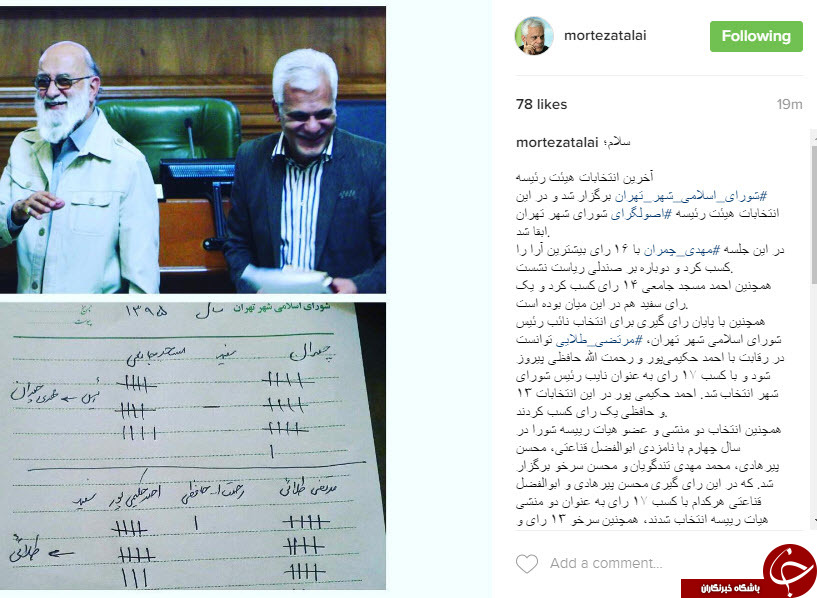 mortezatalai
Following
78 likes
19m
mortezatalai سلام؛
آخرین انتخابات هیئت رئیسه
#شورای_اسلامی_شهر_تهران برگزار شد و در این
انتخابات هیئت رئیسه #اصولگرای شورای شهر تهران
ابقا شد.
در این جلسه #مهدی_چمران با ۱۶ رای بیشترین آرا را
کسب کرد و دوباره بر صندلی ریاست نشست.
همچنین احمد مسجد جامعی ۱۴ رای کسب کرد و یک
رای سفید هم در این میان بوده است.
همچنین با پایان رای گیری برای انتخاب نائب رئیس
شورای اسلامی شهر تهران، #مرتضی_طلایی توانست
در رقابت با احمد حکیمی‌پور و رحمت الله حافظی پیروز
شود و با کسب ۱۷ رای به عنوان نایب رئیس شورای
شهر انتخاب شد. احمد حکیمی پور در این انتخابات ۱۳
و حافظی یک رای کسب کردند.
همچنین انتخاب دو منشی و عضو هیات رییسه شورا در
سال چهارم با نامزدی ابوالفضل قناعتی، محسن
پیرهادی، محمد مهدی تندگویان و محسن سرخو برگزار
شد. که در این رای گیری محسن پیرهادی و ابوالفضل
قناعتی هرکدام با کسب ۱۷ رای به عنوان دو منشی
هیات رییسه انتخاب شدند، همچنین سرخو ۱۳ رای و
Add a comment...
شورای اسلامی شهر تهران سال ۱۳۹۵
تاریخ
پیوست
چمران سفید مسجد جامعی
رئیس ← مهدی چمران
مرتضی طلائی رحمت ا.. حافظی احمد حکیمی پور سفید
← طلائی
باشگاه خبرنگاران